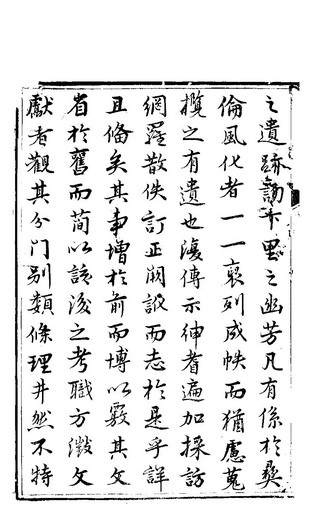 之遺跡訪下里之幽芳凡有係於彝
倫風化者一一裒列成帙而猶慮蒐
攬之有遺也復傳示紳耆遍加採訪
網羅散佚訂正闕訛而志於是乎詳
且備矣其事增於前而博以覈其文
省於舊而簡以該後之考職方徵文
獻者觀其分門别類條理井然不特